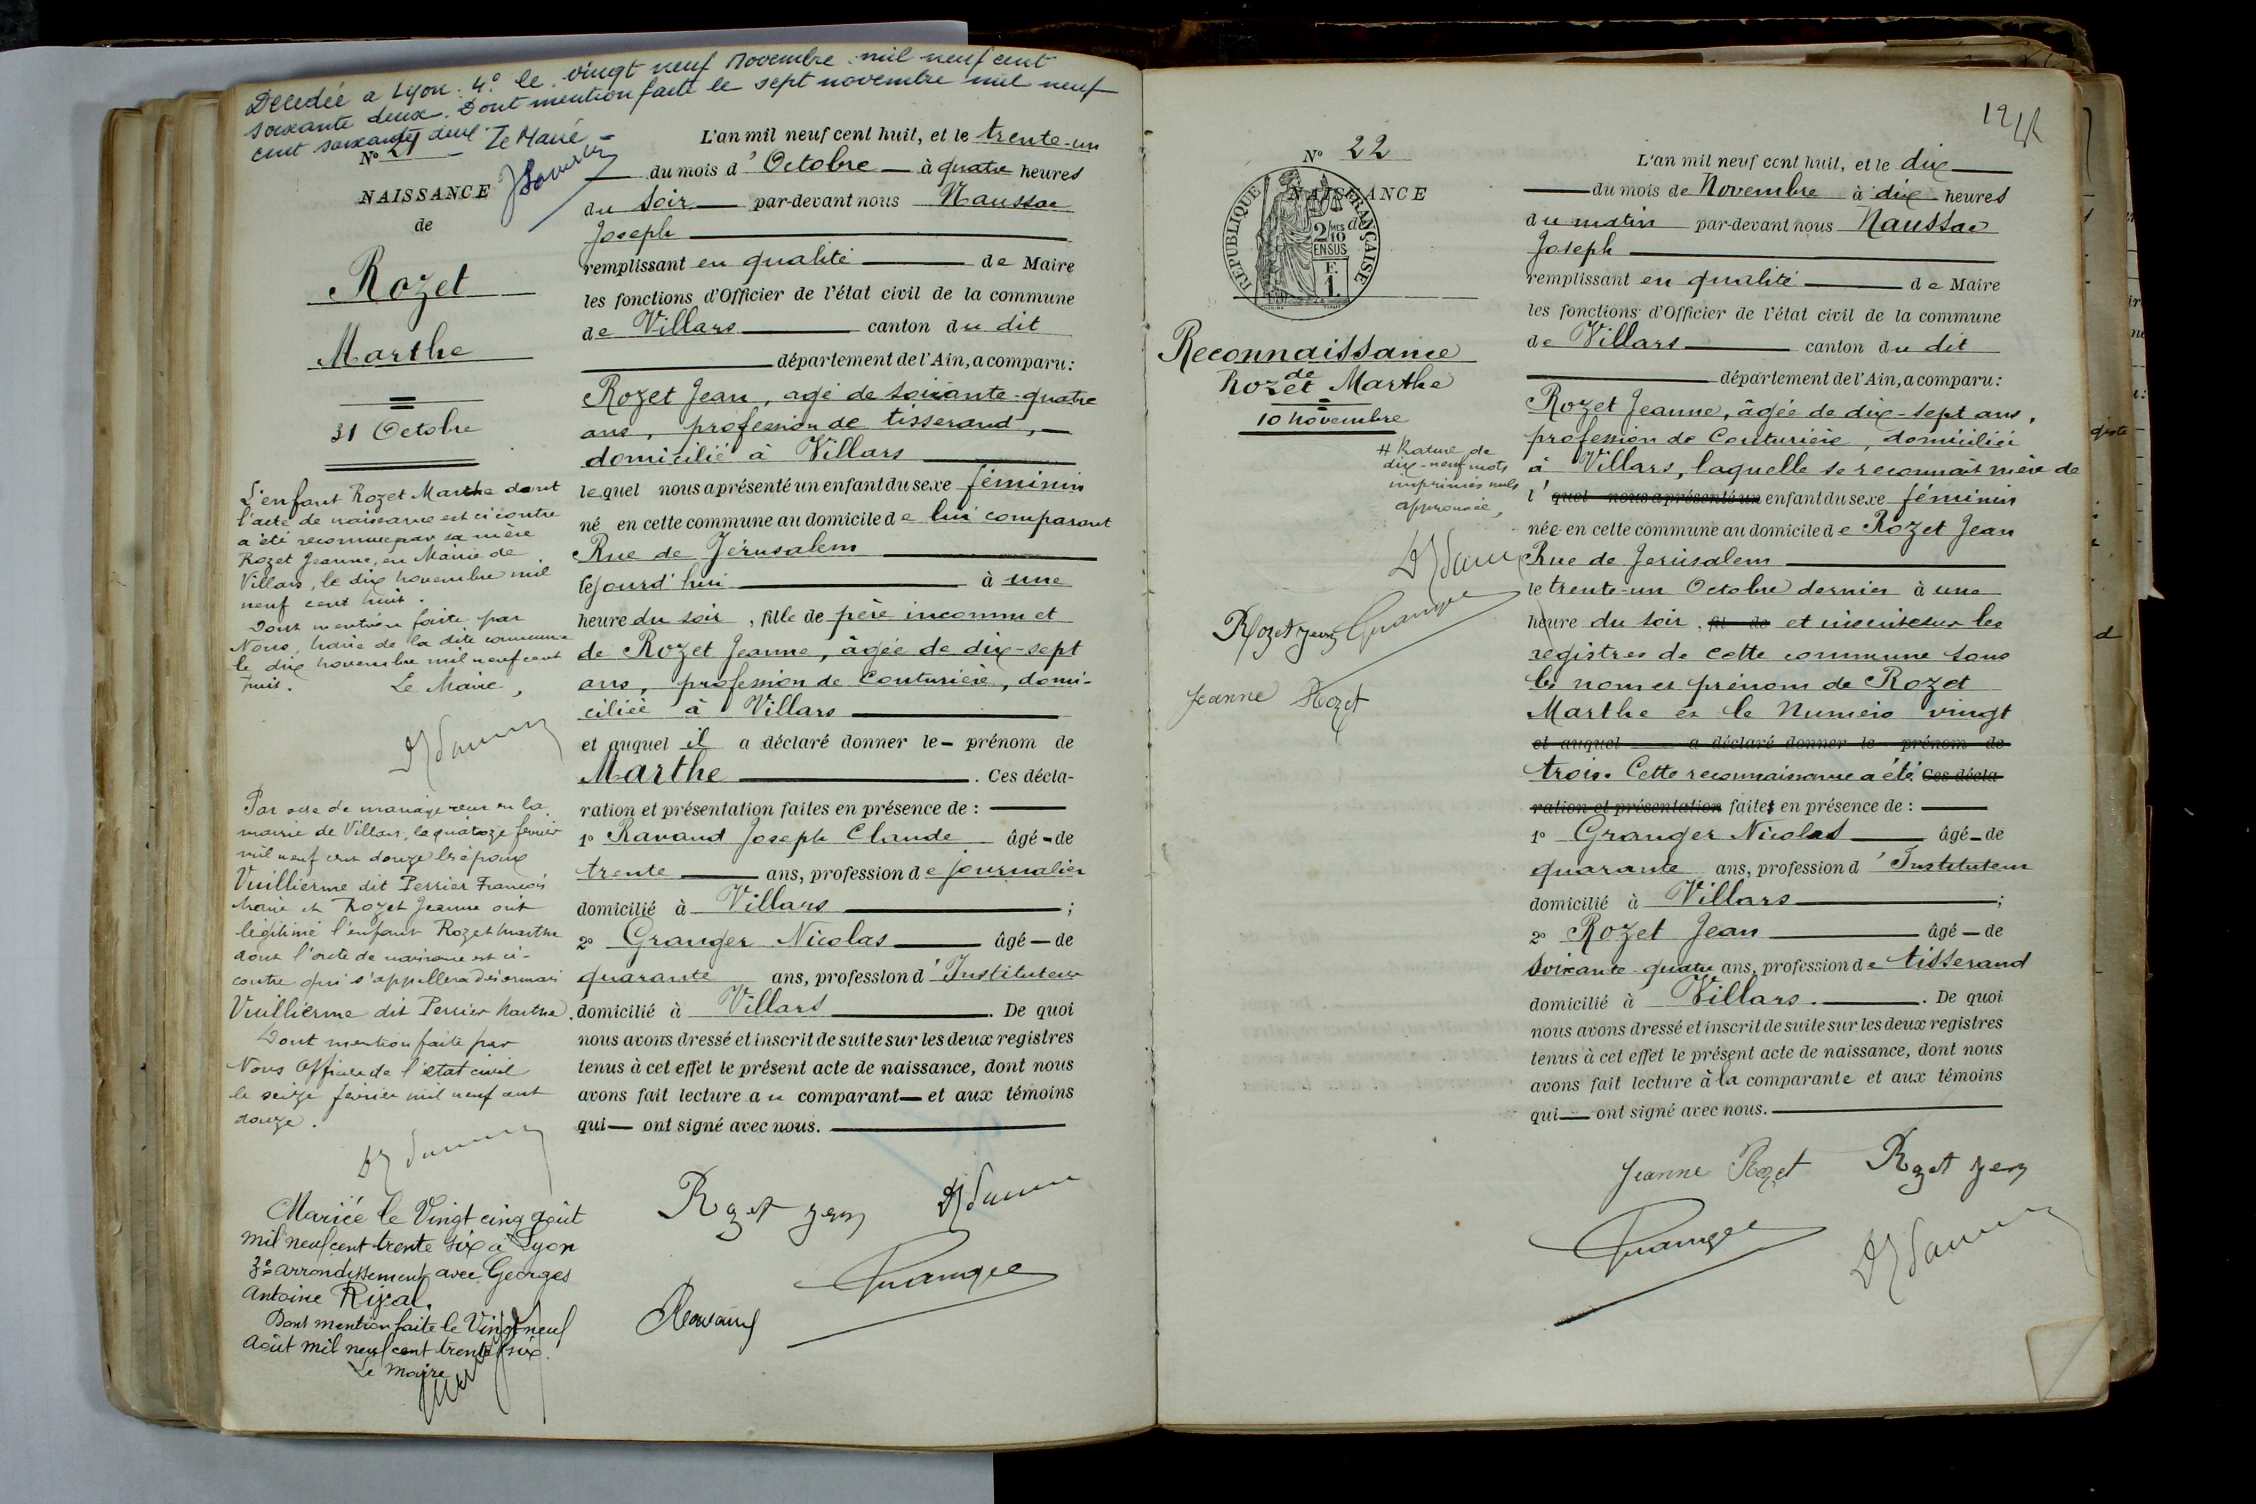 Décédée à Lyon 4e le vingt neuf novembre mil neuf cent
soixante deux. Dont mention faite le sept novembre mil neuf
cent soixante deux. Le Maire
No 21
NAISSANCE
de
Rozet
Marthe
31 Octobre
L'enfant Rozet Marthe dont
l'acte de naissance est ci contre
a été reconnue par sa mère
Rozet Jeanne, en Mairie de
Villars, le dix novembre mil
neuf cent huit.
Dont mention faite par
Nous, Maire de la dite commune
le dix novembre mil neuf cent
huit. Le Maire,
Par acte de mariage reçu en la
mairie de Villars, le quatorze février
mil neuf cent douze les époux
Vuillierme dit Perrier François
Marie et Rozet Jeanne ont
légitimé l'enfant Rozet Marthe
dont l'acte de naissance est ci-
contre qui s'appellera désormais
Vuillierme dit Perrier Marthe.
Dont mention faite par
Nous Officier de l'état civil
le seize février mil neuf cent
douze.
Mariée le Vingt cinq août
mil neuf cent trente six à Lyon
3e arrondissement avec Georges
Antoine
Dont mention faite le Vingt neuf
Août mil neuf cent trente six.
Le Maire
L'an mil neuf cent huit, et le trente-un
du mois d'Octobre à quatre heures
du soir par-devant nous Naussac
Joseph
remplissant en qualité de Maire
les fonctions d'Officier de l'état civil de la commune
de Villars canton du dit
département de l'Ain, a comparu:
Rozet Jean, agé de soixante-quatre
ans, profession de tisserand,
domicilié à Villars
lequel nous a présenté un enfant du sexe féminin
né en cette commune au domicile de lui comparant
Rue de Jérusalem
le jourd'hui à une
heure du soir, fille de père inconnu et
de Rozet Jeanne, âgée de dix-sept
ans, profession de Couturière, domi-
ciliée à Villars
et auquel il a déclaré donner le prénom de
Marthe. Ces décla-
ration et présentation faites en présence de :
1o Ravaud Joseph Claude âgé de
trente ans, profession de journalier
domicilié à Villars ;
2o Granger Nicolas âgé de
quarante ans, profession d'Instituteur
domicilié à Villars. De quoi
nous avons dressé et inscrit de suite sur les deux registres
tenus à cet effet le présent acte de naissance, dont nous
avons fait lecture au comparant et aux témoins
qui ont signé avec nous.
Rozet jean
Granger
Ravaud
No 22
NAISSANCE
de
REPUBLIQUE FRANÇAISE
2/10
EN SUS
F.
1.
Reconnaissance
de
Rozet Marthe
10 novembre
# Rature de
dix-neuf mots
imprimés nuls
approuvée,
Rozet jean Granger
Jeanne Rozet
L'an mil neuf cent huit, et le dix
du mois de Novembre à dix heures
du matin par-devant nous Naussac
Joseph
remplissant en qualité de Maire
les fonctions d'Officier de l'état civil de la commune
de Villars canton du dit
département de l'Ain, a comparu:
Rozet Jeanne, âgée de dix-sept ans,
profession de Couturière, domiciliée
à Villars, laquelle se reconnaît mère de
l'quel nous a présenté un enfant du sexe féminin
née en cette commune au domicile de Rozet Jean
Rue de Jerusalem
le trente-un Octobre dernier à une
heure du soir. fil de et inscrite sur les
registres de cette commune sous
les nom et prénom de Rozet
Marthe et le Numéro vingt
et auquel a déclaré donner le prénom de
trois. Cette reconnaissance a été Ces décla-
ration et présentation faites en présence de :
1o Granger Nicolas âgé de
quarante ans, profession d'Instituteur
domicilié à Villars ;
2o Rozet Jean âgé de
soixante-quatre ans, profession de tisserand
domicilié à Villars. De quoi
nous avons dressé et inscrit de suite sur les deux registres
tenus à cet effet le présent acte de naissance, dont nous
avons fait lecture à la comparante et aux témoins
qui ont signé avec nous.
Jeanne Rozet Rozet jean
Granger